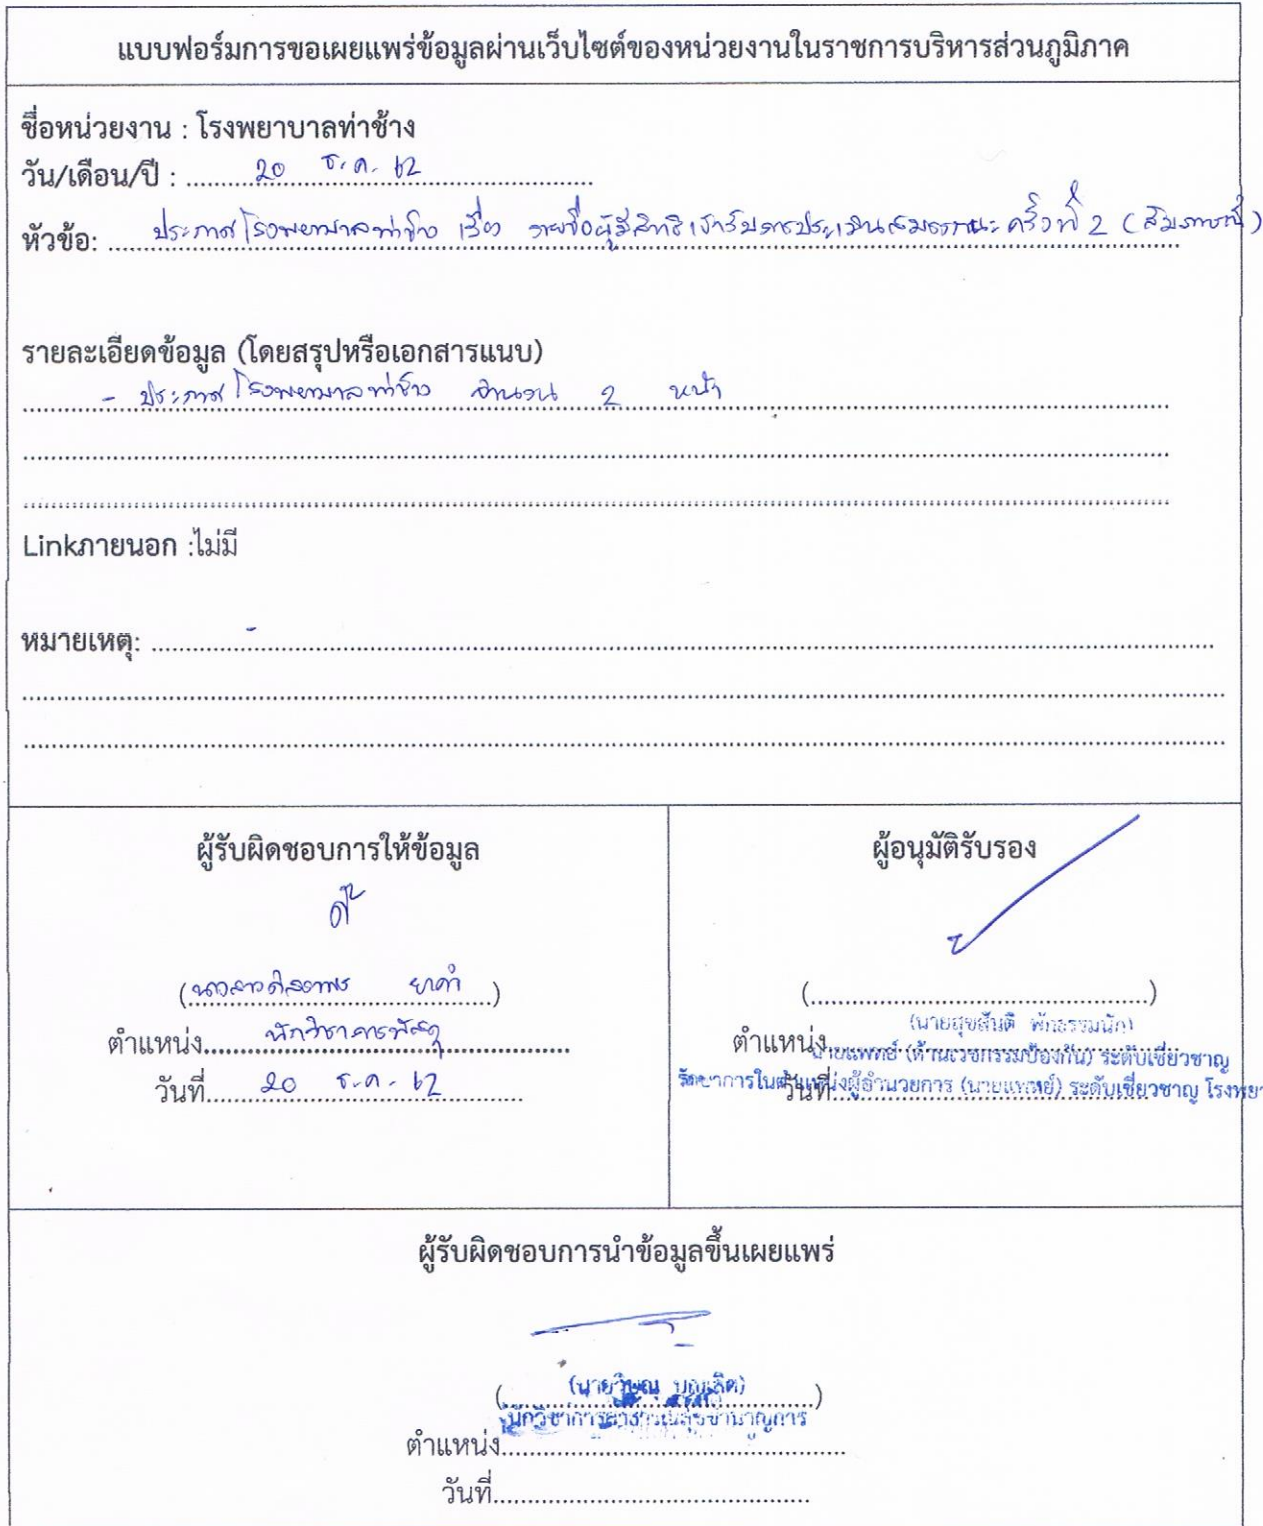 แบบฟอร์มการขอเผยแพร่ข้อมูลผ่านเว็บไซต์ของหน่วยงานในราชการบริหารส่วนภูมิภาค
ชื่อหน่วยงาน : โรงพยาบาลท่าช้าง
วัน/เดือน/ปี : ........ 20 ธ.ค. 62 ........
หัวข้อ: ..... ประกาศโรงพยาบาลท่าช้าง เรื่อง รายชื่อผู้มีสิทธิเข้ารับการประเมินสมรรถนะ ครั้งที่ 2 (สัมภาษณ์)
รายละเอียดข้อมูล (โดยสรุปหรือเอกสารแนบ)
- ประกาศโรงพยาบาลท่าช้าง จำนวน 2 หน้า
Linkภายนอก :ไม่มี
หมายเหตุ: ..... - .....
ผู้รับผิดชอบการให้ข้อมูล
ผู้อนุมัติรับรอง
(นางสาว ยาคำ)
(..................)
ตำแหน่ง..... นักวิชาการพัสดุ .....
(นายสุขสันติ พักธรรมนัก)
ตำแหน่ง นายแพทย์ (ด้านเวชกรรมป้องกัน) ระดับเชี่ยวชาญ
วันที่..... 20 ธ.ค. 62 .....
รักษาการในตำแหน่งผู้อำนวยการ (นายแพทย์) ระดับเชี่ยวชาญ โรงพยา
วันที่
ผู้รับผิดชอบการนำข้อมูลขึ้นเผยแพร่
(นายวิษณุ บุญเลิศ)
นักวิชาการสาธารณสุขชำนาญการ
ตำแหน่ง..................
วันที่..................